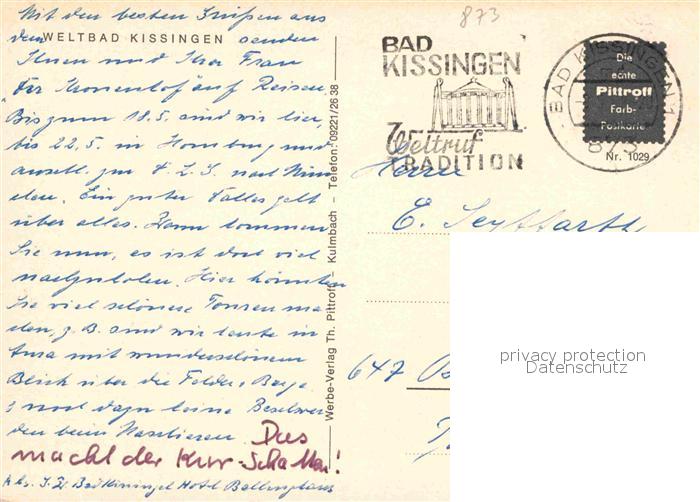 Mit den besten Grüßen aus
dem WELTBAD KISSINGEN senden
Ihnen und Ihrer Frau
Der Kronenhof auf Reisen.
Bis zum 18.5. sind wir hier,
bis 22.5. in Homburg und
nach
den. Ein guter
über alles. Wann kommen
Sie nun, es ist dort viel
nachzuholen. Hier könnten
Sie viel schönere Touren ma
chen, z. B. sind wir heute in
mit wunderschönem
Blick über die Felder, Berge
und dazu keine Beschwer
den beim Das
macht der Kur-Schatten!
Bad Kissingen Hotel
Werbe-Verlag Th. Pittroff Kulmbach - Telefon: 09221/26 38
873
BAD
KISSINGEN
Weltruf
TRADITION
BAD KISSINGEN 1
873
Die
echte
Pittroff
Farb-
Postkarte
Nr. 1029
Herrn
E. Seyffarth
647
privacy protection
Datenschutz